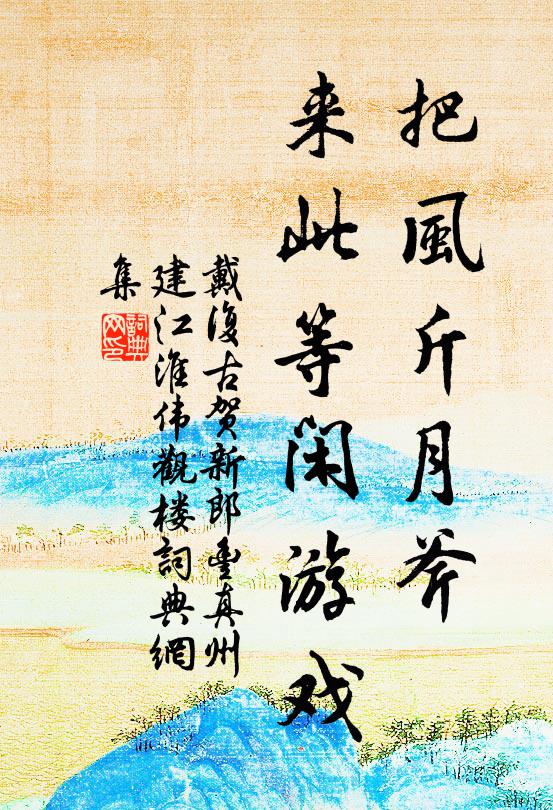 把風斤月斧
来此等闲游戏
戴復古贺新郎豊真州
建江淮伟觀楼詞典網
集
詞典网印